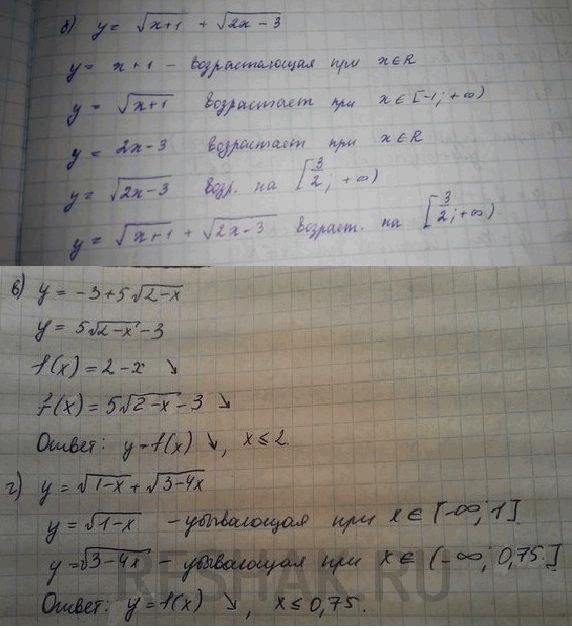 б) y = √x+1 + √2x-3
y = x+1 - возрастающая при x∈R
y = √x+1 возрастает при x∈[-1; +∞)
y = 2x-3 возрастает при x∈R
y = √2x-3 возр. на [3/2; +∞)
y = √x+1 + √2x-3 возраст. на [3/2; +∞)
в) y = -3+5√2-x
y = 5√2-x -3
f(x) = 2-x ↘
f(x) = 5√2-x -3 ↘
Ответ: y=f(x) ↘, x≤2
г) y = √1-x + √3-4x
y = √1-x - убывающая при x∈[-∞; 1]
y = √3-4x - убывающая при x∈(-∞; 0,75]
RESHAK.RU
Ответ: y=f(x) ↘, x≤0,75.